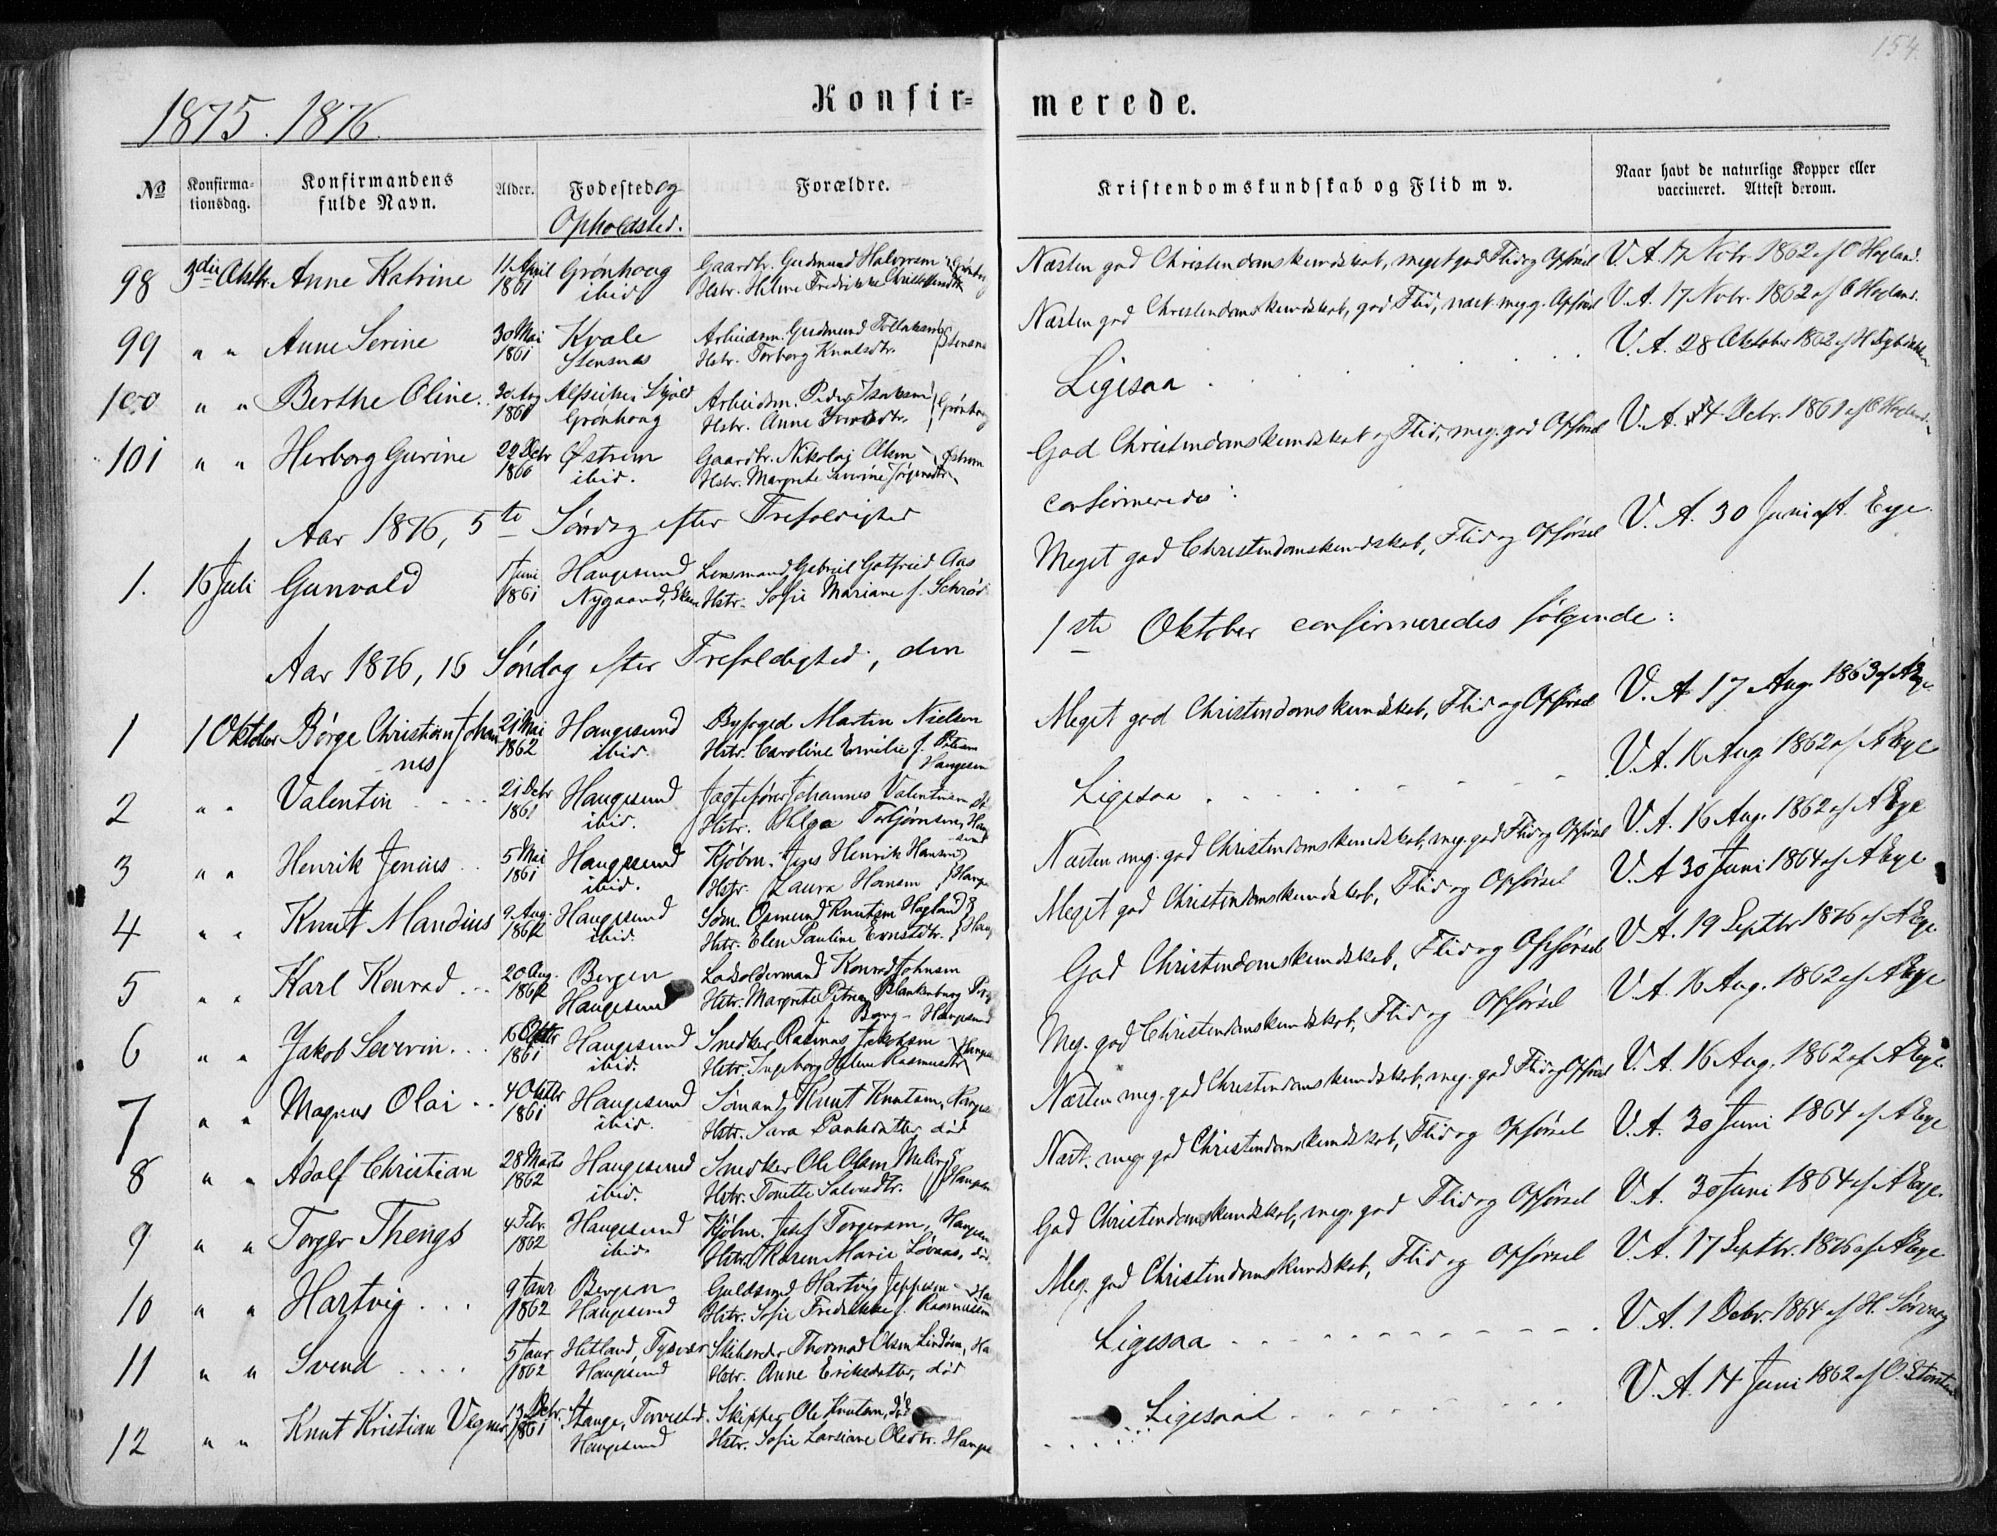 154.
1875. 1876.
Konfir=
merede.
No
Konfirma-
tionsdag.
Konfirmandens
fulde Navn.
Alder.
Fødested og
Opholdsted.
Forældre.
Kristendomskundskab og Flid m v.
Naar havt de naturlige Kopper eller
vaccineret. Attest derom.
98 3die Oktbr. Anne Katrine 11 April 1861 Grønhoug ibid Gaardbr. Gudmund Halvorsen Grønhoug
Hstr. Helene Fredrikke
Næsten god Christendomskundskab, meget god Flid og Opførsel V. A. 17 Novbr. 1862 af O Hagland.
99 " " Anne Serine 30 Mai 1861 Kvale Stensnæs Arbeidsm. Gudmund Stensnæs
Hstr. Torborg Knutsdtr.
Næsten god Christendomskundskab, god Flid, næst. meg. g. Opførsel V. A. 17 Novbr. 1862 af O Hagland.
100 " " Berthe Oline. 20 Aug 1861 Skjold Grønhoug Arbeidsm. Peder Isaksen Grønhoug
Hstr. Anne
Ligesaa V. A. 28 Oktober 1862 af H
101 " " Herborg Gurine 22 Decbr 1860 Østrem ibid. Gaardbr. Nikolai Olsen Østrem
Hstr. Margrete Serine
God Christendomskundskab og Flid, meg. god Opførsel V. A. 4 Decbr. 1861 af O Hagland
Aar 1876, 5te Søndag efter Trefoldighed confirmeredes:
1. 16 Juli Gunvald 1 Juni 1861 Haugesund Nygaard, Lensmand Gabriel Gotfried Aas
Hstr. Sofie Mariane f. Schrøder
Meget god Christendomskundskab, Flid og Opførsel V. A. 30 Juni af A. Eye
Aar 1876, 16 Søndag efter Trefoldighed, den 1ste Oktober confirmeredes følgende:
1 1 Oktober Børge Christian Johannes 21 Mai 1862 Haugesund ibid. Byfoged Martin Nielsen
Hstr. Caroline Emilie f. Petersen Haugesund
Meget god Christendomskundskab, Flid og Opførsel V. A 17 Aug. 1863 af A Eye
2 " " Valentin 21 Decbr 1861 Haugesund ibid. Jagtefører Johannes Valentinsen
Hstr. Helga Torbjørnsen, Haugesund
Ligesaa V. A. 16 Aug 1862 af A Eye
3 " " Henrik Jenius 5 Mai 1861 Haugesund ibid. Kjøbm. Jens Henrik Hansen
Hstr. Laura Hansen Hauge
Næsten meg. god Christendomskundskab, meg. god Flid og Opførsel V. A. 16 Aug. 1862 af A Eye
4 " " Knut Mandius 9 Aug. 1862 Haugesund ibid. Osmund Knutsen Hagland
Hstr. Elen Pauline Ernstdtr. Haug
Meget god Christendomskundskab, Flid og Opførsel V. A 30 Juni 1864 af A Eye
5 " " Karl Konrad 20 Aug. 1862 Bergen Haugesund Losoldermand Konrad Johnsen
Hstr. Margrete Petrea Blankenburg
Borg - Haugesund
God Christendomskundskab, Flid og Opførsel V. A. 19 Septbr 1876 af A Eye
6 " " Jakob Severin 16 1861 Haugesund ibid. Snedker Rasmus Jakobsen
Hstr. Ingeborg Helene Rasmusdtr.
Meg. god Christendomskundskab, Flid og Opførsel V. A. 16 Aug. 1862 af A Eye
7 " " Magnus Olai 4 Oktbr 1861 Haugesund ibid. Sømand Knut Knutsen, Hauges
Hstr. Sara død
Næsten meg. god Christendomskundskab, meg. god Flid og Opførsel V. A. 16 Aug. 1862 af A Eye
8 " " Adolf Christian 28 Marts 1862 Haugesund ibid. Snedker Ole Olsen
Hstr. Tonette Salvesdtr. Haugesu
Næst. meg. god Christendomskundskab, Flid og Opførsel V. A. 30 Juni 1864 af A Eye
9 " " Torger Thengs 4 Febr. 1862 Haugesund ibid. Kjøbm. Josef Torgersen, Hauges
Hstr. Karen Marie Løvaas, død.
God Christendomskundskab, meg. god Flid og Opførsel V. A. 30 Juni 1864 af A Eye.
10 " " Hartvig 9 Janr 1862 Bergen Haugesund Guldsmed Hartvig Jeppesen - Hau
Hstr. Sofie Fredrikke f. Rasmussen
Meg. god Christendomskundskab, Flid og Opførsel V. A. 17 Septbr. 1876 af A Eye
11 " " Svend 5 Janr 1862 Hetland, Tysvær Haugesund Thormod Olsen Lindøen, Ha
Hstr. Anne Eriksdatter, død
Ligesaa V. A. 1 Decbr. 1864 af H. Sørvaag
12 " " Knut Kristian Vegner 13 Decbr. 1861 Stange, Torvestd. Haugesund Skipper Ole Knutsen, død
Hstr. Sofie Larsiane Olsdtr. Hauge
Ligesaa V. A. 14 Juni 1862 af O.